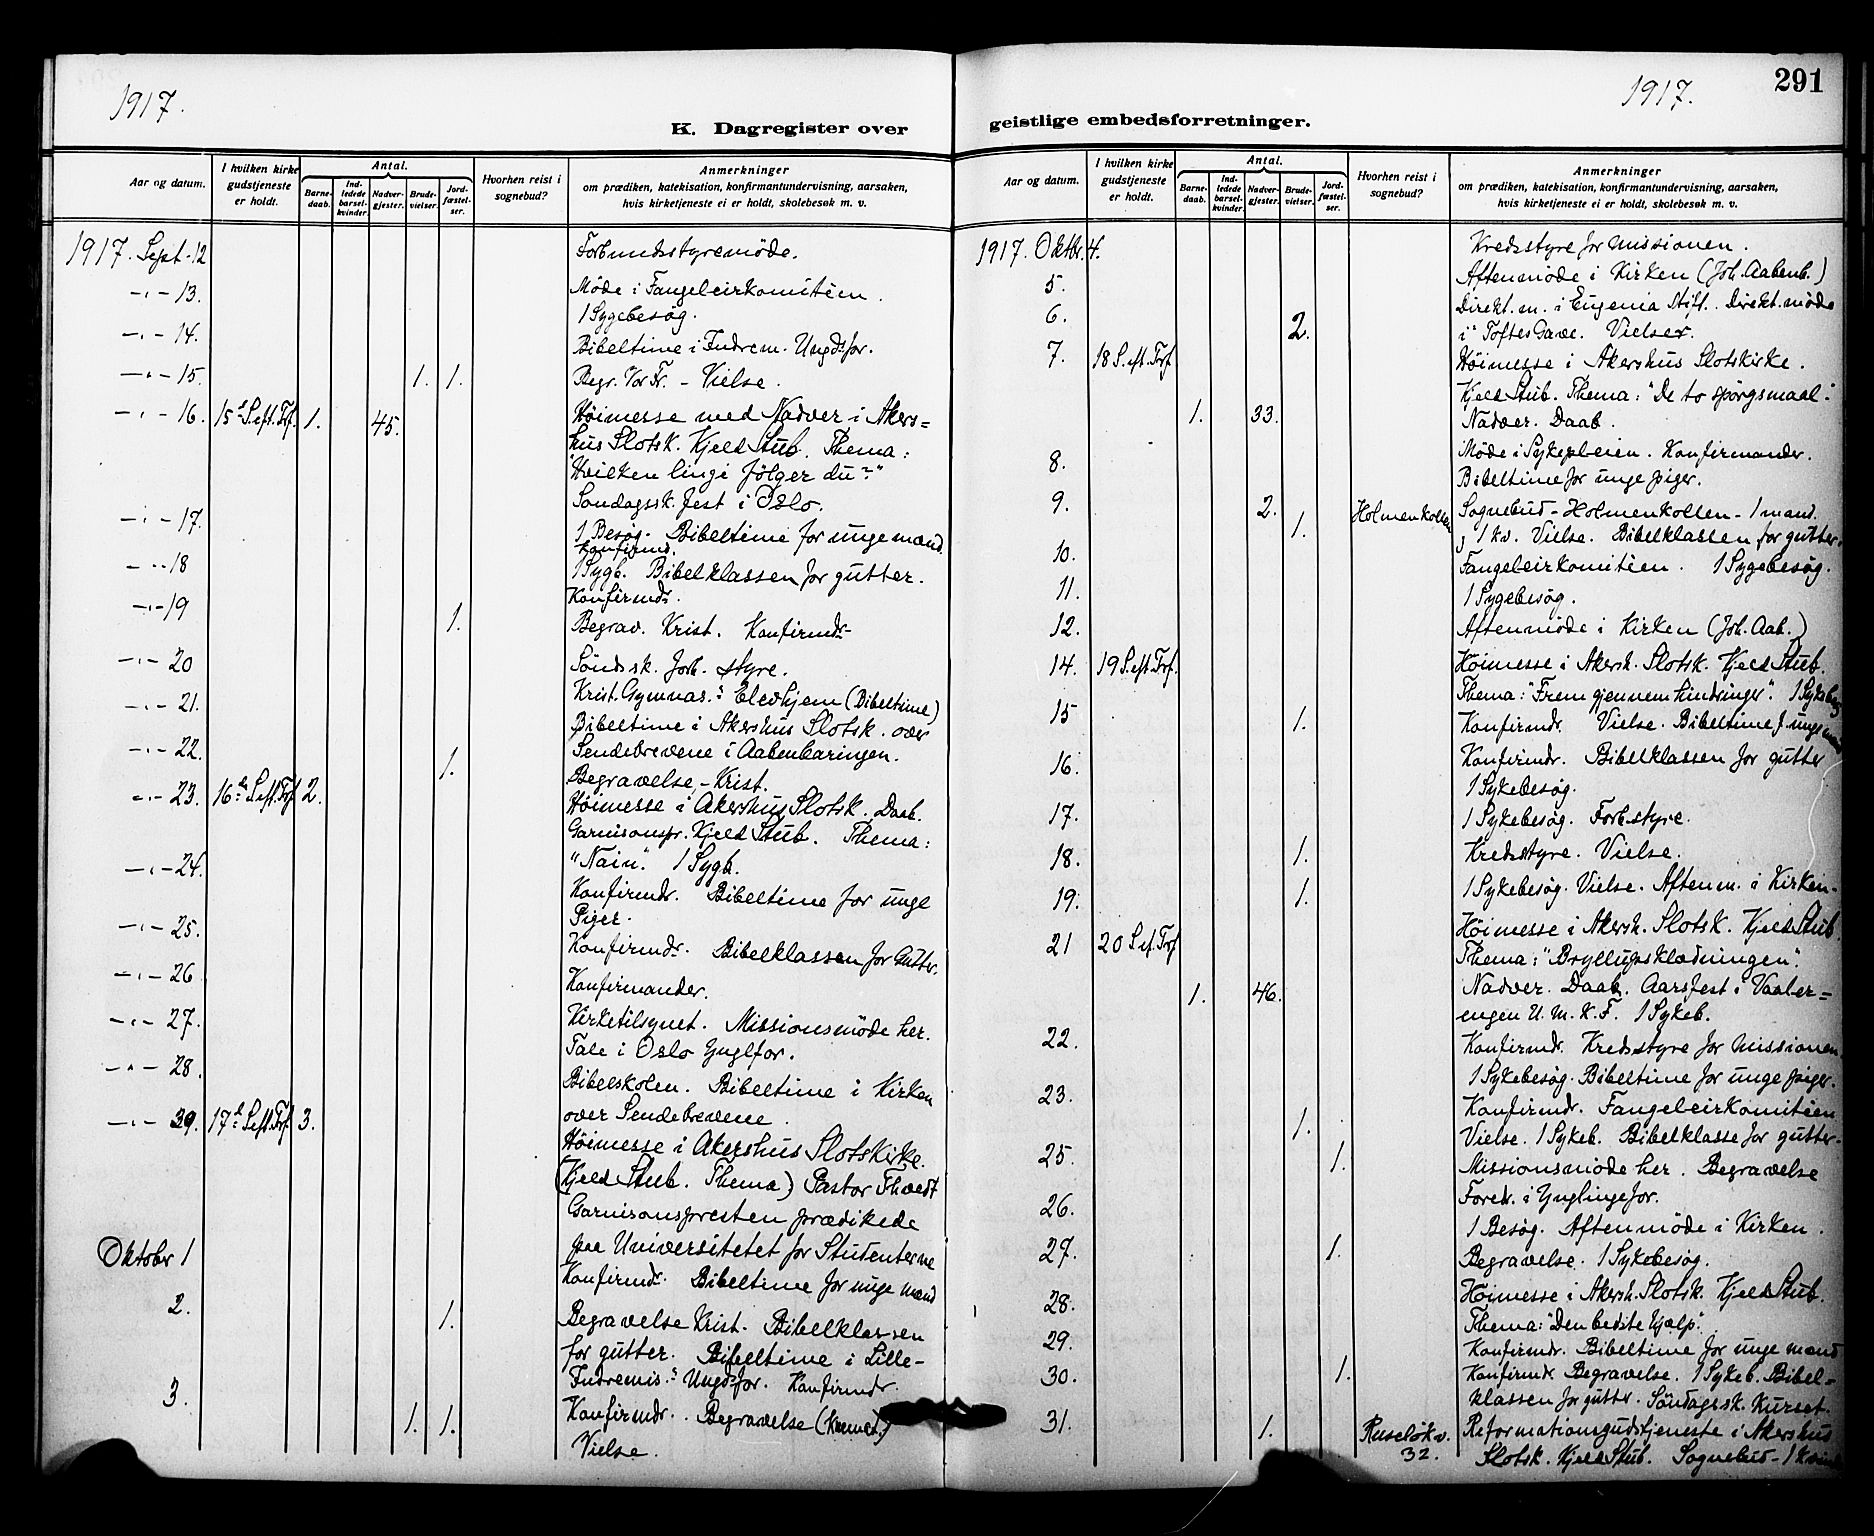 1917.
K. Dagregister over
Aar og datum.
I hvilken kirke gudstjeneste er holdt.
Antal.
Barne-daab.
Ind-ledede barsel-kvinder.
Nadver-gjester.
Brude-vielser.
Jord-fæstel-ser.
Hvorhen reist i sognebud?
Anmerkninger
om prædiken, katekisation, konfirmantundervisning, aarsaken,
hvis kirketjeneste ei er holdt, skolebesøk m. v.
1917. Sept. 12 Forbundsstyremöde.
-"- 13. Möde i Fangeleirkomitéen.
1 Sygebesög.
-"- 14. Bibeltime i Indrem. Ungdsfor.
-"- 15. 1. 1. Begr. Vor Fr. - Vielse.
-"- 16. 15d S. eft. Trf. 1. 45. Höimesse med Nadver i Akers=
hus Slotsk. Kjeld Stub. Thema:
"Hvilken linje fölger du?"
Søndagssk. fest i Oslo.
-"- 17. 1 Besög. Bibeltime for unge mænd.
Konfirmd.
-"- 18 1 Sygb. Bibelklassen for gutter.
Konfirmdr.
-"- 19 1. Begrav. Krist. Konfirmdr.
-"- 20 Söndssk. forb. styre.
Krist. Gymnas.s Elevhjem (Bibeltime)
-"- 21. Bibeltime i Akershus Slotsk. over
Sendebrevene i Aabenbaringen.
-"- 22. 1. Begravelse, Krist.
-"- 23. 16d S. eft. Trf. 2. Höimesse i Akershus Slotsk. Daab.
Garnisonspr. Kjeld Stub. Thema:
"Nain". 1 Sygb.
-"- 24. Konfirmdr. Bibeltime for unge
Piger.
-"- 25. Konfirmdr. Bibelklassen for Gutter.
-"- 26 Konfirmander.
-"- 27. Kirketilsynet. Missionsmöde her.
Tale i Oslo Ynglfor.
-"- 28. Bibelskolen. Bibeltime i Kirken
over Sendebrevene.
-"- 29. 17d S. eft. Trf. 3. Höimesse i Akershus Slotskirke.
(Kjeld Stub. Thema) Pastor Thvedt
Garnisonspresten prædikede
paa Universitetet for Studenterne
Oktober 1 Konfirmdr. Bibeltime for unge mænd
2. 1. Begravelse Krist. Bibelklassen
for gutter. Bibeltime i Lille-
Indremis.s Ungdsfor. Konfirmdr.
3. 1. 1. Konfirmdr. Begravelse (Kremat.)
Vielse.
1917.
291
geistlige embedsforretninger.
Aar og datum.
I hvilken kirke gudstjeneste er holdt.
Antal.
Barne-daab.
Ind-ledede barsel-kvinder.
Nadver-gjester.
Brude-vielser.
Jord-fæstel-ser.
Hvorhen reist i sognebud?
Anmerkninger
om prædiken, katekisation, konfirmantundervisning, aarsaken,
hvis kirketjeneste ei er holdt, skolebesøk m. v.
1917. Oktbr. 4. Kredsstyre for Missionen.
5. Aftenmöde i Kirken (Joh. Aabenb.)
6. Direkt. m. i Eugenia Stift. Direkt. möde
2. i "Toftes Gave. Vielser.
7. 18 S. eft. Trf. Höimesse i Akershus Slotskirke.
Kjeld Stub. Thema: "De to spörgsmaal".
1. 33. Nadver. Daab.
8. Möde i Sykepleien. Konfirmander.
Bibeltime for unge piger.
9. 2. Holmenkollen Sognebud - Holmenkollen - 1 mand.
1. og 1 kv. Vielse. Bibelklassen for gutter.
10. Fangeleirkomitéen. 1 Sygebesög.
11. 1 Sygebesög.
12. Aftenmöde i Kirken (Joh. Aab.)
14. 19 S. eft. Trf. Höimesse i Akersh. Slotsk. Kjeld Stub.
Thema: "Frem gjennem hindringer". 1 Sykebes.
15 1. Konfirmdr. Vielse. Bibeltime f. unge mænd
16. Konfirmdr. Bibelklassen for gutter
1 Sykebesög.
17. 1 Sykebesög. Forb. styre.
18. 1. Kredsstyre. Vielse.
19. 1. 1 Sykebesög. Vielse. Aftenm. i Kirken.
21 20 S. ef. Trf. Höimesse i Akersh. Slotsk. Kjeld Stub.
Thema: "Bryllupsklædningen".
1. 46. Nadver. Daab. Aarsfest i Vaaler=
engen U. M. K. F. 1 Sykeb.
22. Konfirmdr. Kredsstyre for Missionen.
1 Sykebesög. Bibeltime for unge piger.
23. Konfirmdr. Fangeleirkomitéen
1. Vielse. 1 Sykeb. Bibelklasse for gutter.
25. 1. Missionsmöde her. Begravelse
Foredr. i Ynglingefor.
26. 1 Besög. Aftenmöde i Kirken.
27. 1. Begravelse. 1 Sykebesög.
28. Höimesse i Akersh. Slotsk. Kjeld Stub.
Thema: "Den bedste hjælp".
29. Konfirmdr. Bibeltime for unge mænd
30. 1. Konfirmdr. Begravelse. 1 Sykeb. Bibel=
klassen for gutter. Söndagssk. Kurset.
31. 1. Ruseløkv. 32. Reformationsgudstjeneste i Akershus
Slotsk. Kjeld Stub. Sognebud - 1 kvinde